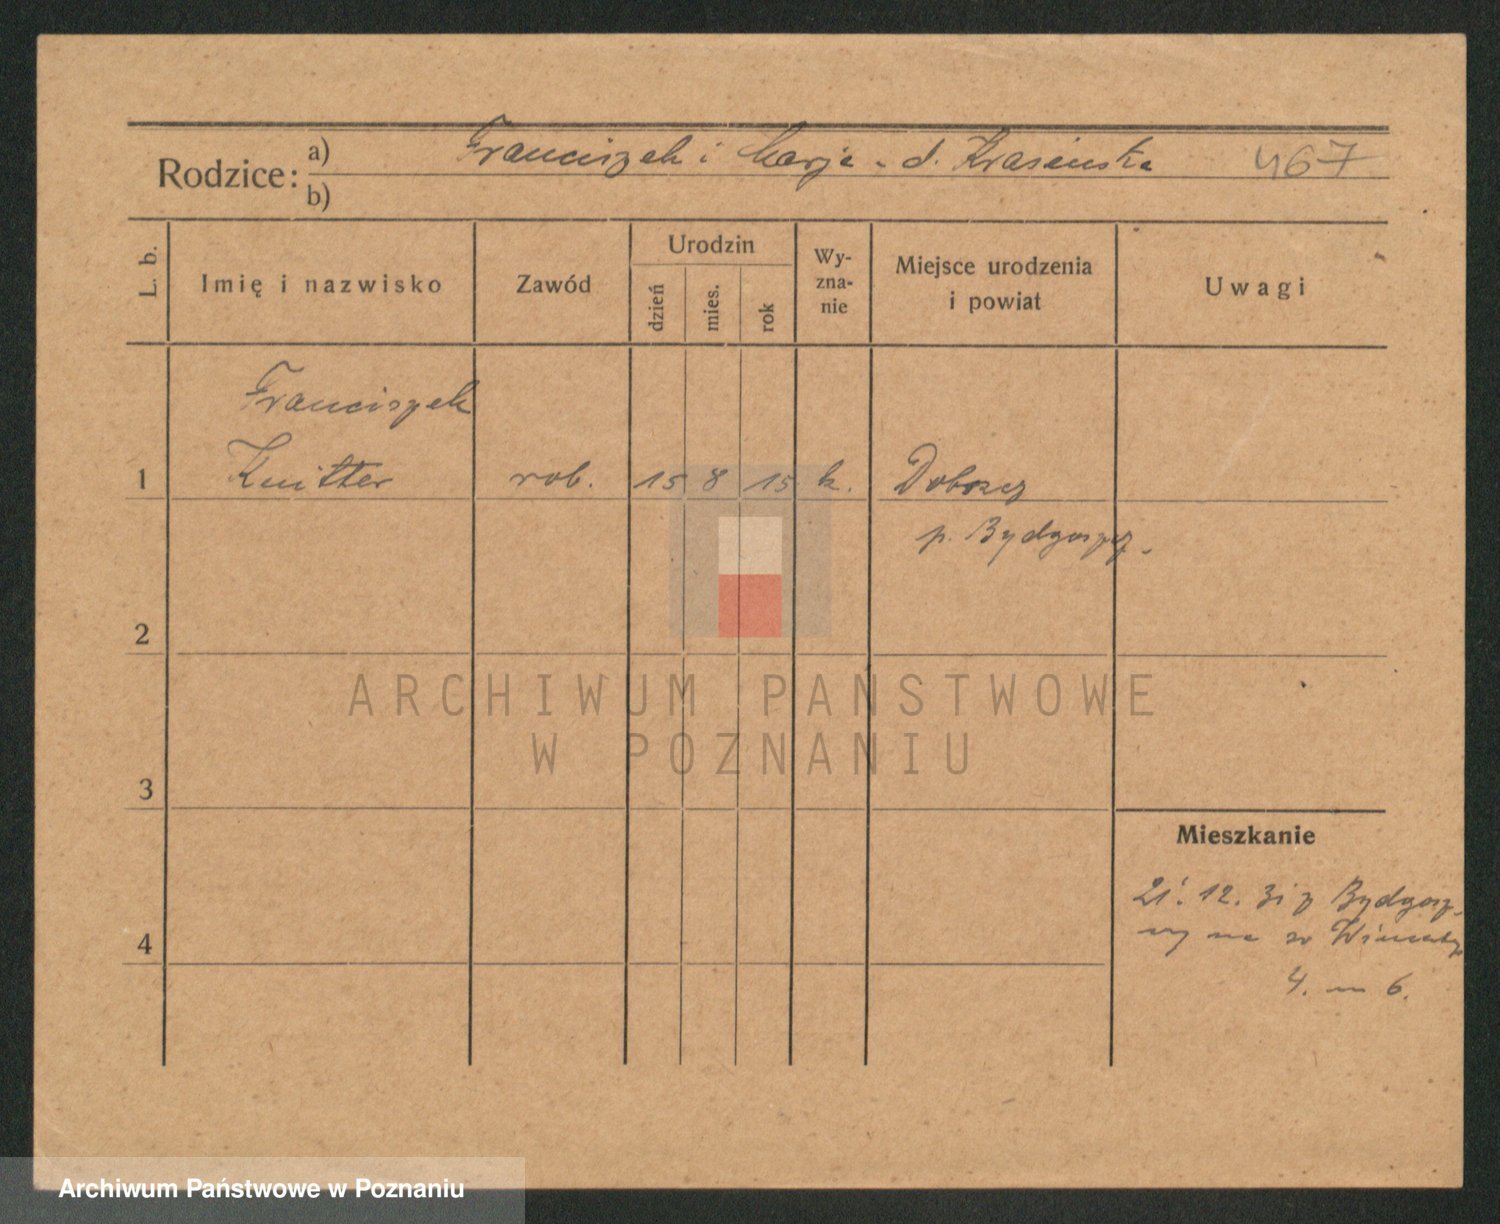 Rodzice: a) Franciszek i Marja - d. Krasińska 467
b)
L. b. Imię i nazwisko Zawód Urodzin dzień mies. rok Wy-zna-nie Miejsce urodzenia i powiat Uwagi
Franciszek
1 Knitter rob. 15 8 15 k. Dobrcz
p. Bydgoszcz.
2
ARCHIWUM PAŃSTWOWE
W POZNANIU
3
Mieszkanie
21. 12. 31 z Bydgosz-
4
4. m 6.
Archiwum Państwowe w Poznaniu